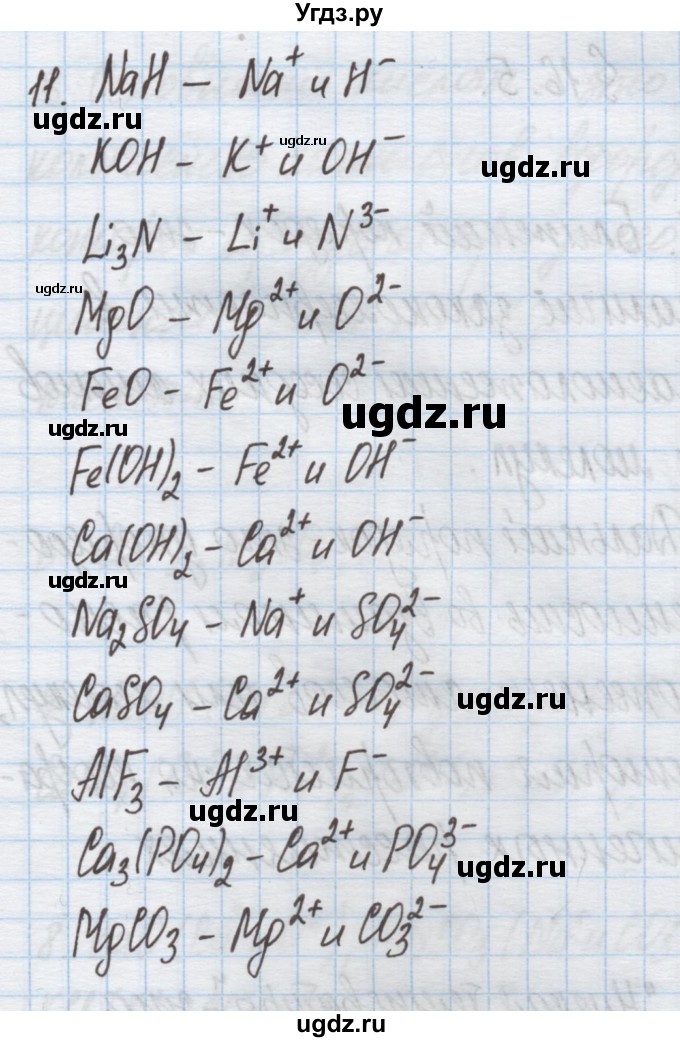 Угдз.ру
11. NaH – Na⁺ и H⁻
ugdz.ru
ugdz.ru
KOH – K⁺ и OH⁻
ugdz.ru
Li₃N – Li⁺ и N³⁻
ugdz.ru
MgO – Mg²⁺ и O²⁻
FeO – Fe²⁺ и O²⁻
ugdz.ru
ugdz.ru
Fe(OH)₂ – Fe²⁺ и OH⁻
Ca(OH)₂ – Ca²⁺ и OH⁻
ugdz.ru
Na₂SO₄ – Na⁺ и SO₄²⁻
CaSO₄ – Ca²⁺ и SO₄²⁻
ugdz.ru
AlF₃ – Al³⁺ и F⁻
ugdz.ru
Ca₃(PO₄)₂ – Ca²⁺ и PO₄³⁻
ugdz.ru
MgCO₃ – Mg²⁺ и CO₃²⁻
ugdz.ru